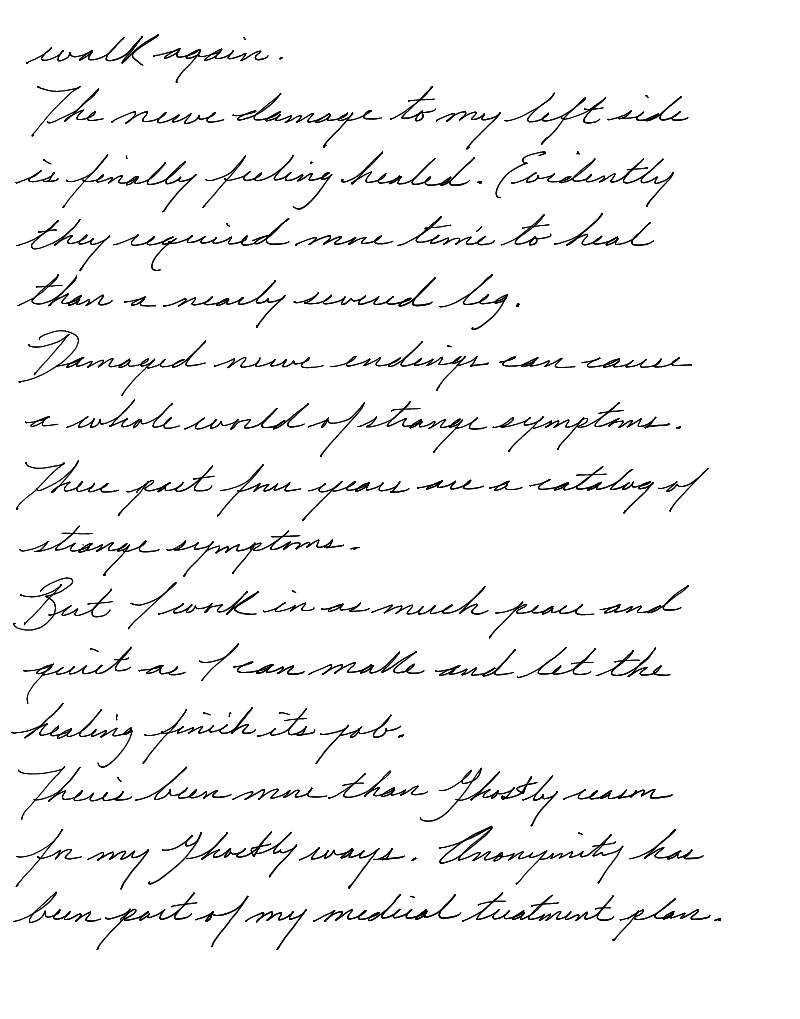 walk again.
The nerve damage to my left side
is finally feeling healed. Evidently
they required more time to heal
than a nearly severed leg.
Damaged nerve endings can cause
a whole world of strange symptoms.
These past four years are a catalog of
strange symptoms.
But I work in as much peace and
quiet as I can make and let the
healing finish its job.
There's been more than Ghostly reason
for my Ghostly ways. Anonymity has
been part of my medical treatment plan.